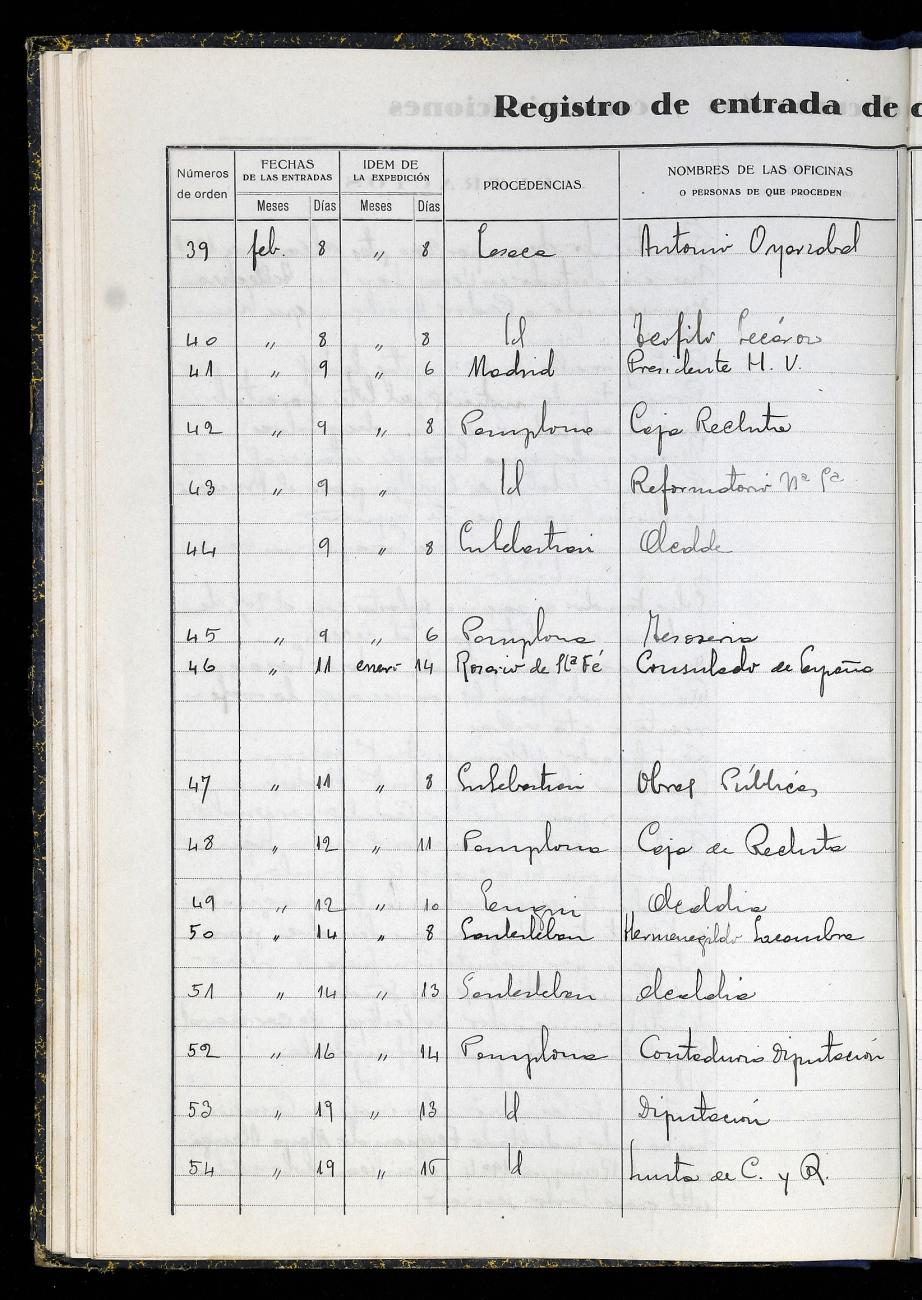 Registro de entrada de
Números de orden | FECHAS DE LAS ENTRADAS | IDEM DE LA EXPEDICIÓN | PROCEDENCIAS | NOMBRES DE LAS OFICINAS O PERSONAS DE QUE PROCEDEN
Meses | Días | Meses | Días
39 feb. 8 " 8 Lesaca Antonio Oyarzabal
40 " 8 " 8 Id Teofilo
41 " 9 " 6 Madrid Presidente H. V.
42 " 9 " 8 Pamplona Caja Recluta
43 " 9 " Id Reformatorio
44 9 " 8 Alcalde
45 " 9 " 6 Pamplona Tesoreria
46 " 11 enero 14 Rosario de Sta Fé Consulado de España
47 " 11 " 8 Obras Públicas
48 " 12 " 11 Pamplona Caja de Recluta
49 " 12 " 10 Alcaldia
50 " 14 " 8 Santesteban Hermenegildo Lacombra
51 " 14 " 13 Santesteban Alcaldia
52 " 16 " 14 Pamplona Contaduria Diputación
53 " 19 " 13 Id Diputación
54 " 19 " 15 Id Junta de C. y R.